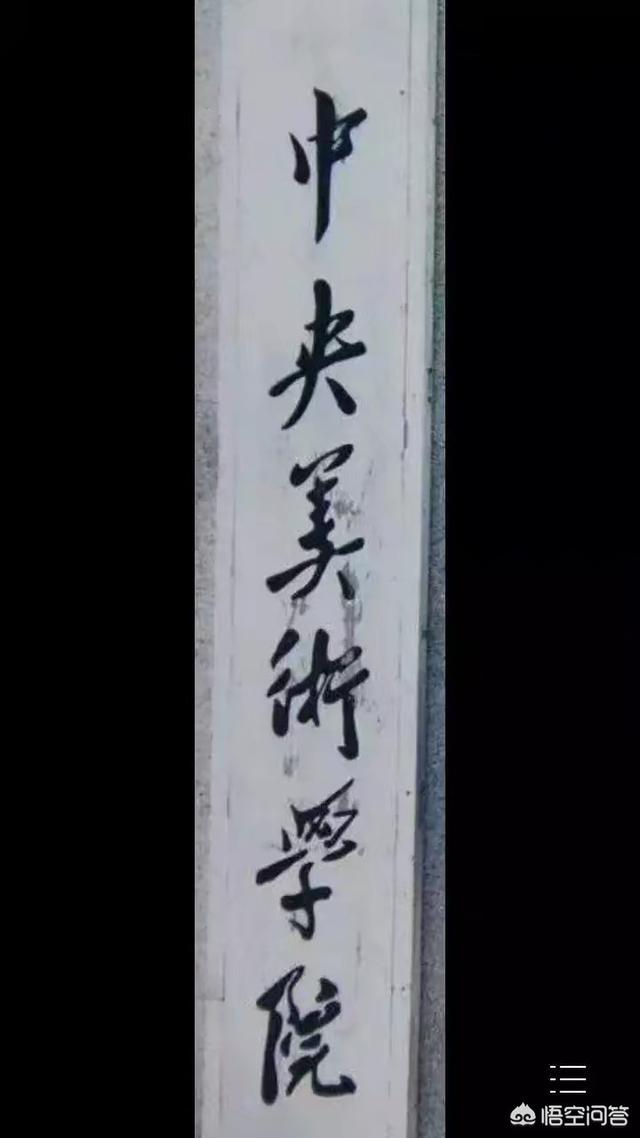 中央美術學院
悟空问答